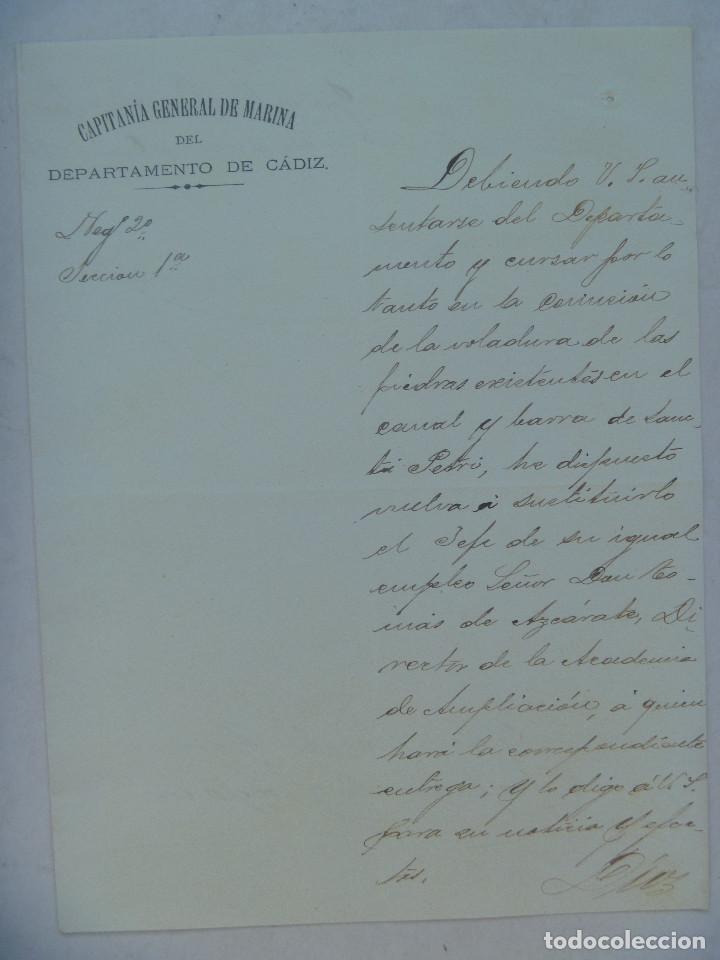 CAPITANÍA GENERAL DE MARINA
DEL
DEPARTAMENTO DE CÁDIZ.
Negº 2º
Seccion 1ª
Debiendo V. S. au-
sentarse del Departa-
mento y cursar por lo
tanto en la Comición
de la voladura de las
piedras existentes en el
canal y barra de Sanc-
ti Petri, he dispuesto
vuelva á sustituirlo
el Jefe de su igual
empleo Señor Don To-
más de Azcárate, Di-
rector de la Academia
de Ampliación, á quien
hará la correspondiente
entrega; y lo digo á V S.
para su noticia y efec-
tos.
todocoleccion.net